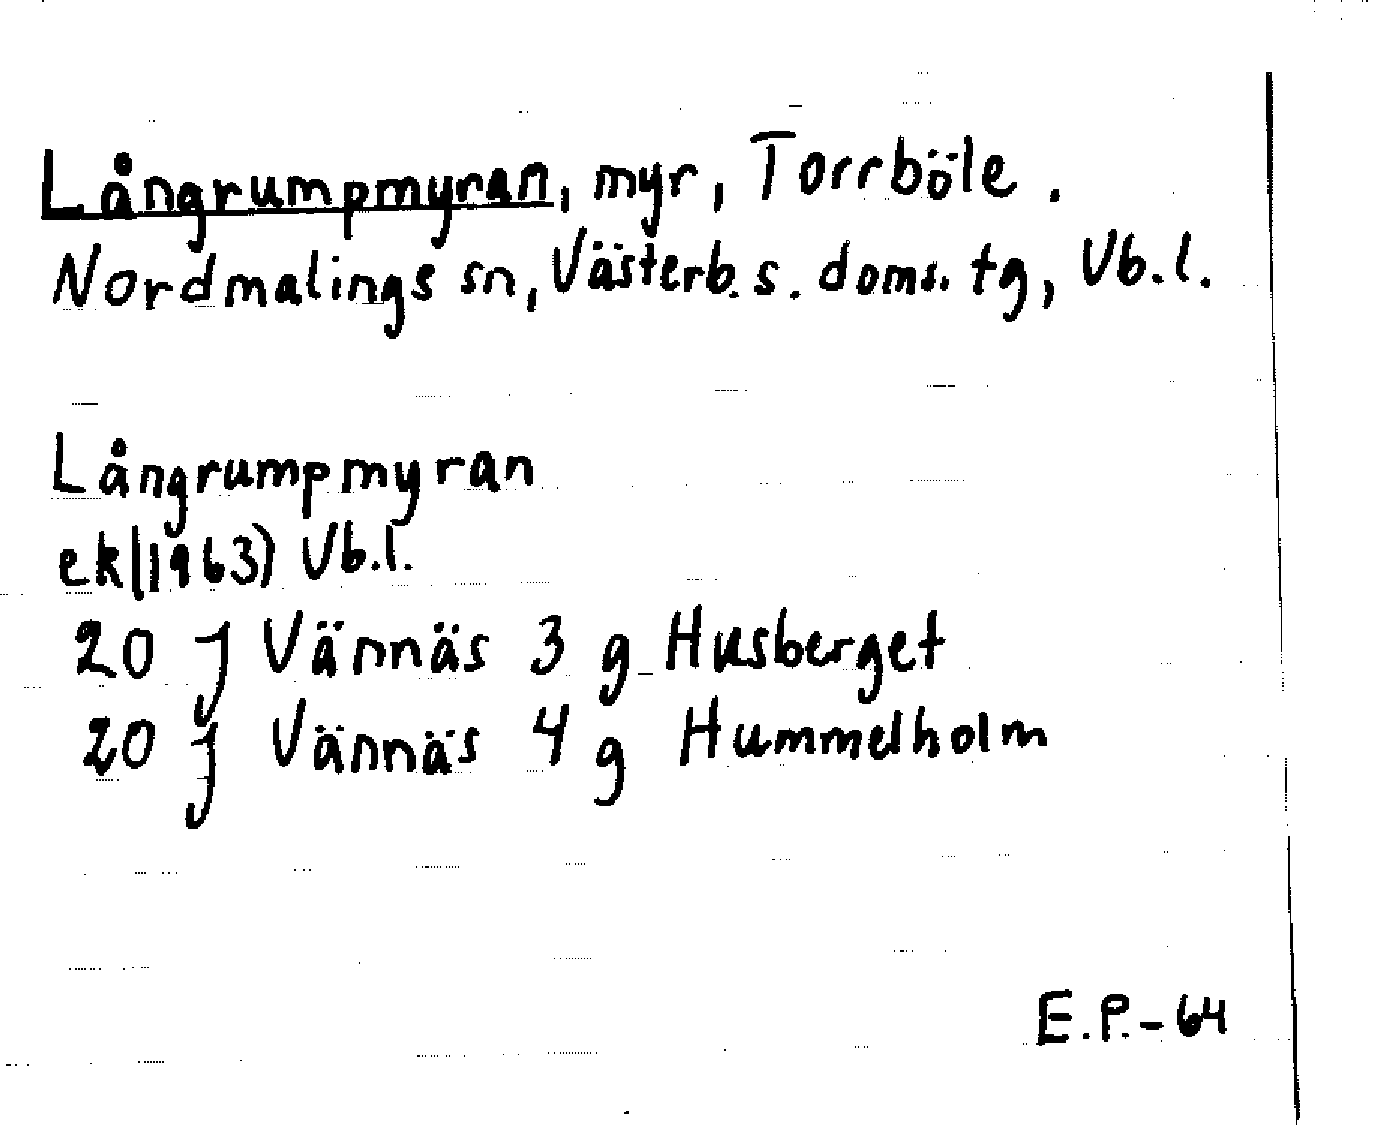 Långrumpmyran, myr, Torrböle.
Nordmalings sn, Västerb. s. doms. tg, Vb.l.
Långrumpmyran
ek(1963) Vb.l.
20 J Vännäs 3 g Husberget
20 J Vännäs 4 g Hummelholm
E.P.-64